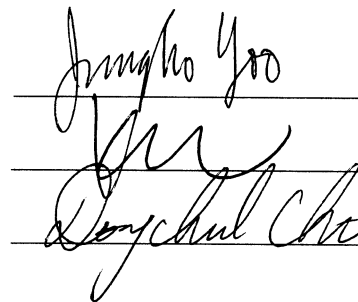 Jungho Yoo
Dongchul Cho